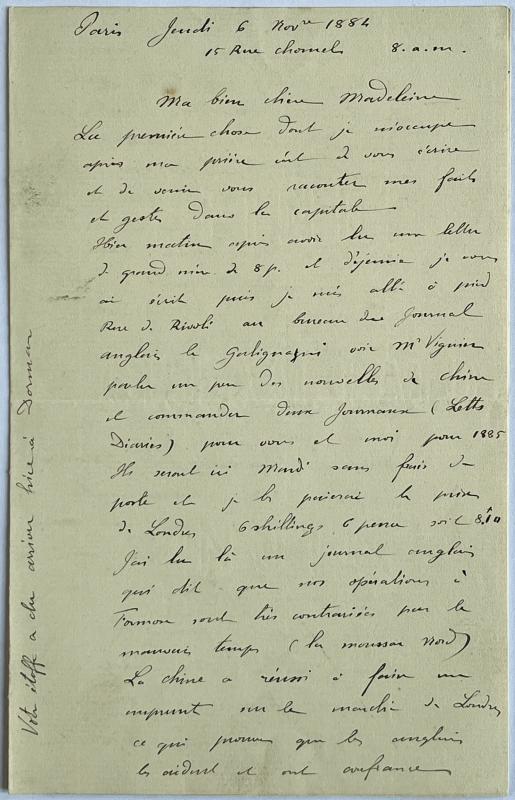 Paris Jeudi 6 Novre 1884
15 Rue Chomel 8. a.m.
Ma bien chère Madeleine
La première chose dont je m'occupe
après ma prière c'est de vous écrire
et de venir vous raconter mes faits
et gestes dans la capitale
Hier matin après avoir lu une lettre
de grand mère de 8 p. et déjeuné je vous
ai écrit puis je suis allé à pied
Rue de Rivoli au bureau du Journal
anglais le Galignani voir Mr Vignier
parler un peu des nouvelles de Chine
et commander deux Journaux (Letts
Diaries) pour vous et moi pour 1885
Ils seront ici Mardi sans frais de
porte et je les paierai le prix
de Londres 6 shillings 6 pence soit 8f10
J'ai lu là un journal anglais
qui dit que nos opérations à
Formose sont très contrariées par le
mauvais temps (la mousson Nord)
La Chine a réussi à faire un
emprunt sur le marché de Londres
ce qui prouve que les anglais
les aident et ont confiance
Votre étoffe a dû arriver hier à Dorman